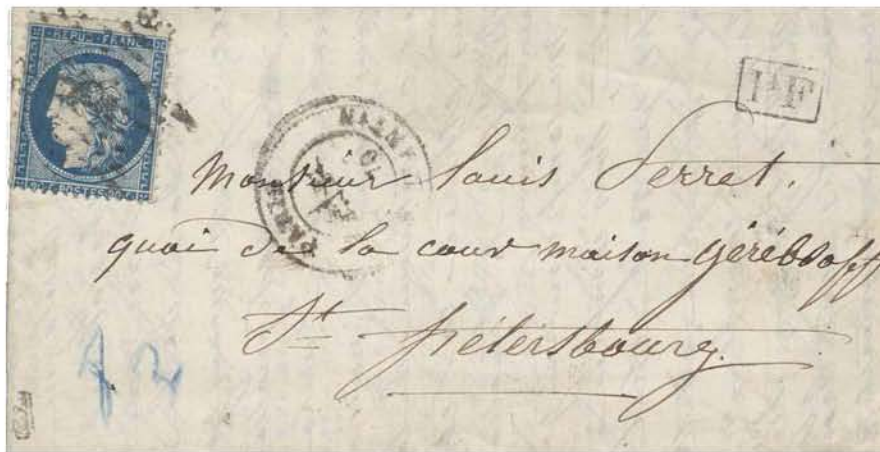 REPUB · FRANC
POSTES
PARIS
PF
Monsieur Louis Perret.
quai de la cour maison Gérébsoff
St Pétersbourg.